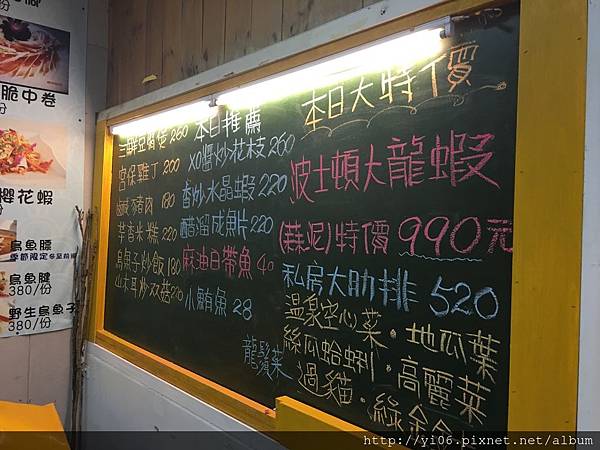 脆中卷
櫻花蝦
烏魚膘
季節限定
烏魚腱
380/份
野生烏魚子
380/份
三鮮豆腐煲 260
宮保雞丁 200
鹹豬肉 180
草香米糕 220
烏魚子炒飯 180
本日推薦
XO醬炒花枝 260
香炒水晶蝦 220
醋溜成魚片 220
麻油白帶魚 40
小鮪魚 28
龍鬚菜
本日大特價
波士頓大龍蝦
(蒜泥)特價 990元
私房大肋排 520
溫泉空心菜·地瓜葉
絲瓜蛤蜊·高麗菜
過貓·綠金
http://yi06.pixnet.net/album